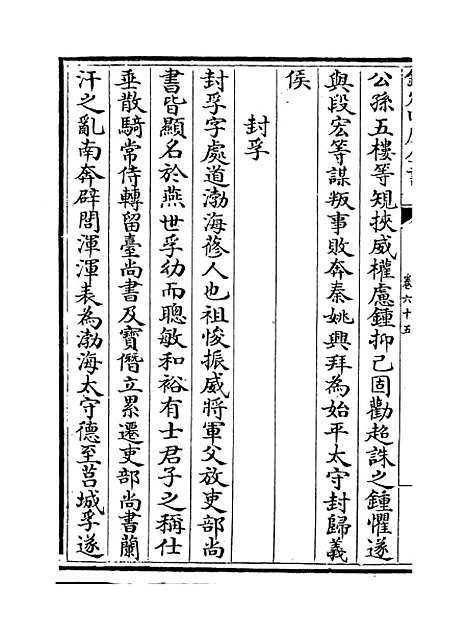 欽定四庫全書
卷六十五
公孫五樓等規挾威權慮鍾抑己固勸超誅之鍾懼遂
與段宏等謀叛事敗奔秦姚興拜為始平太守封歸義
侯
封孚
封孚字處道渤海蓨人也祖悛振威將軍父放吏部尚
書皆顯名於燕世孚幼而聰敏和裕有士君子之稱仕
垂散騎常侍轉留臺尚書及寶僭立累遷吏部尚書蘭
汗之亂南奔辟閭渾渾表為渤海太守德至莒城孚遂